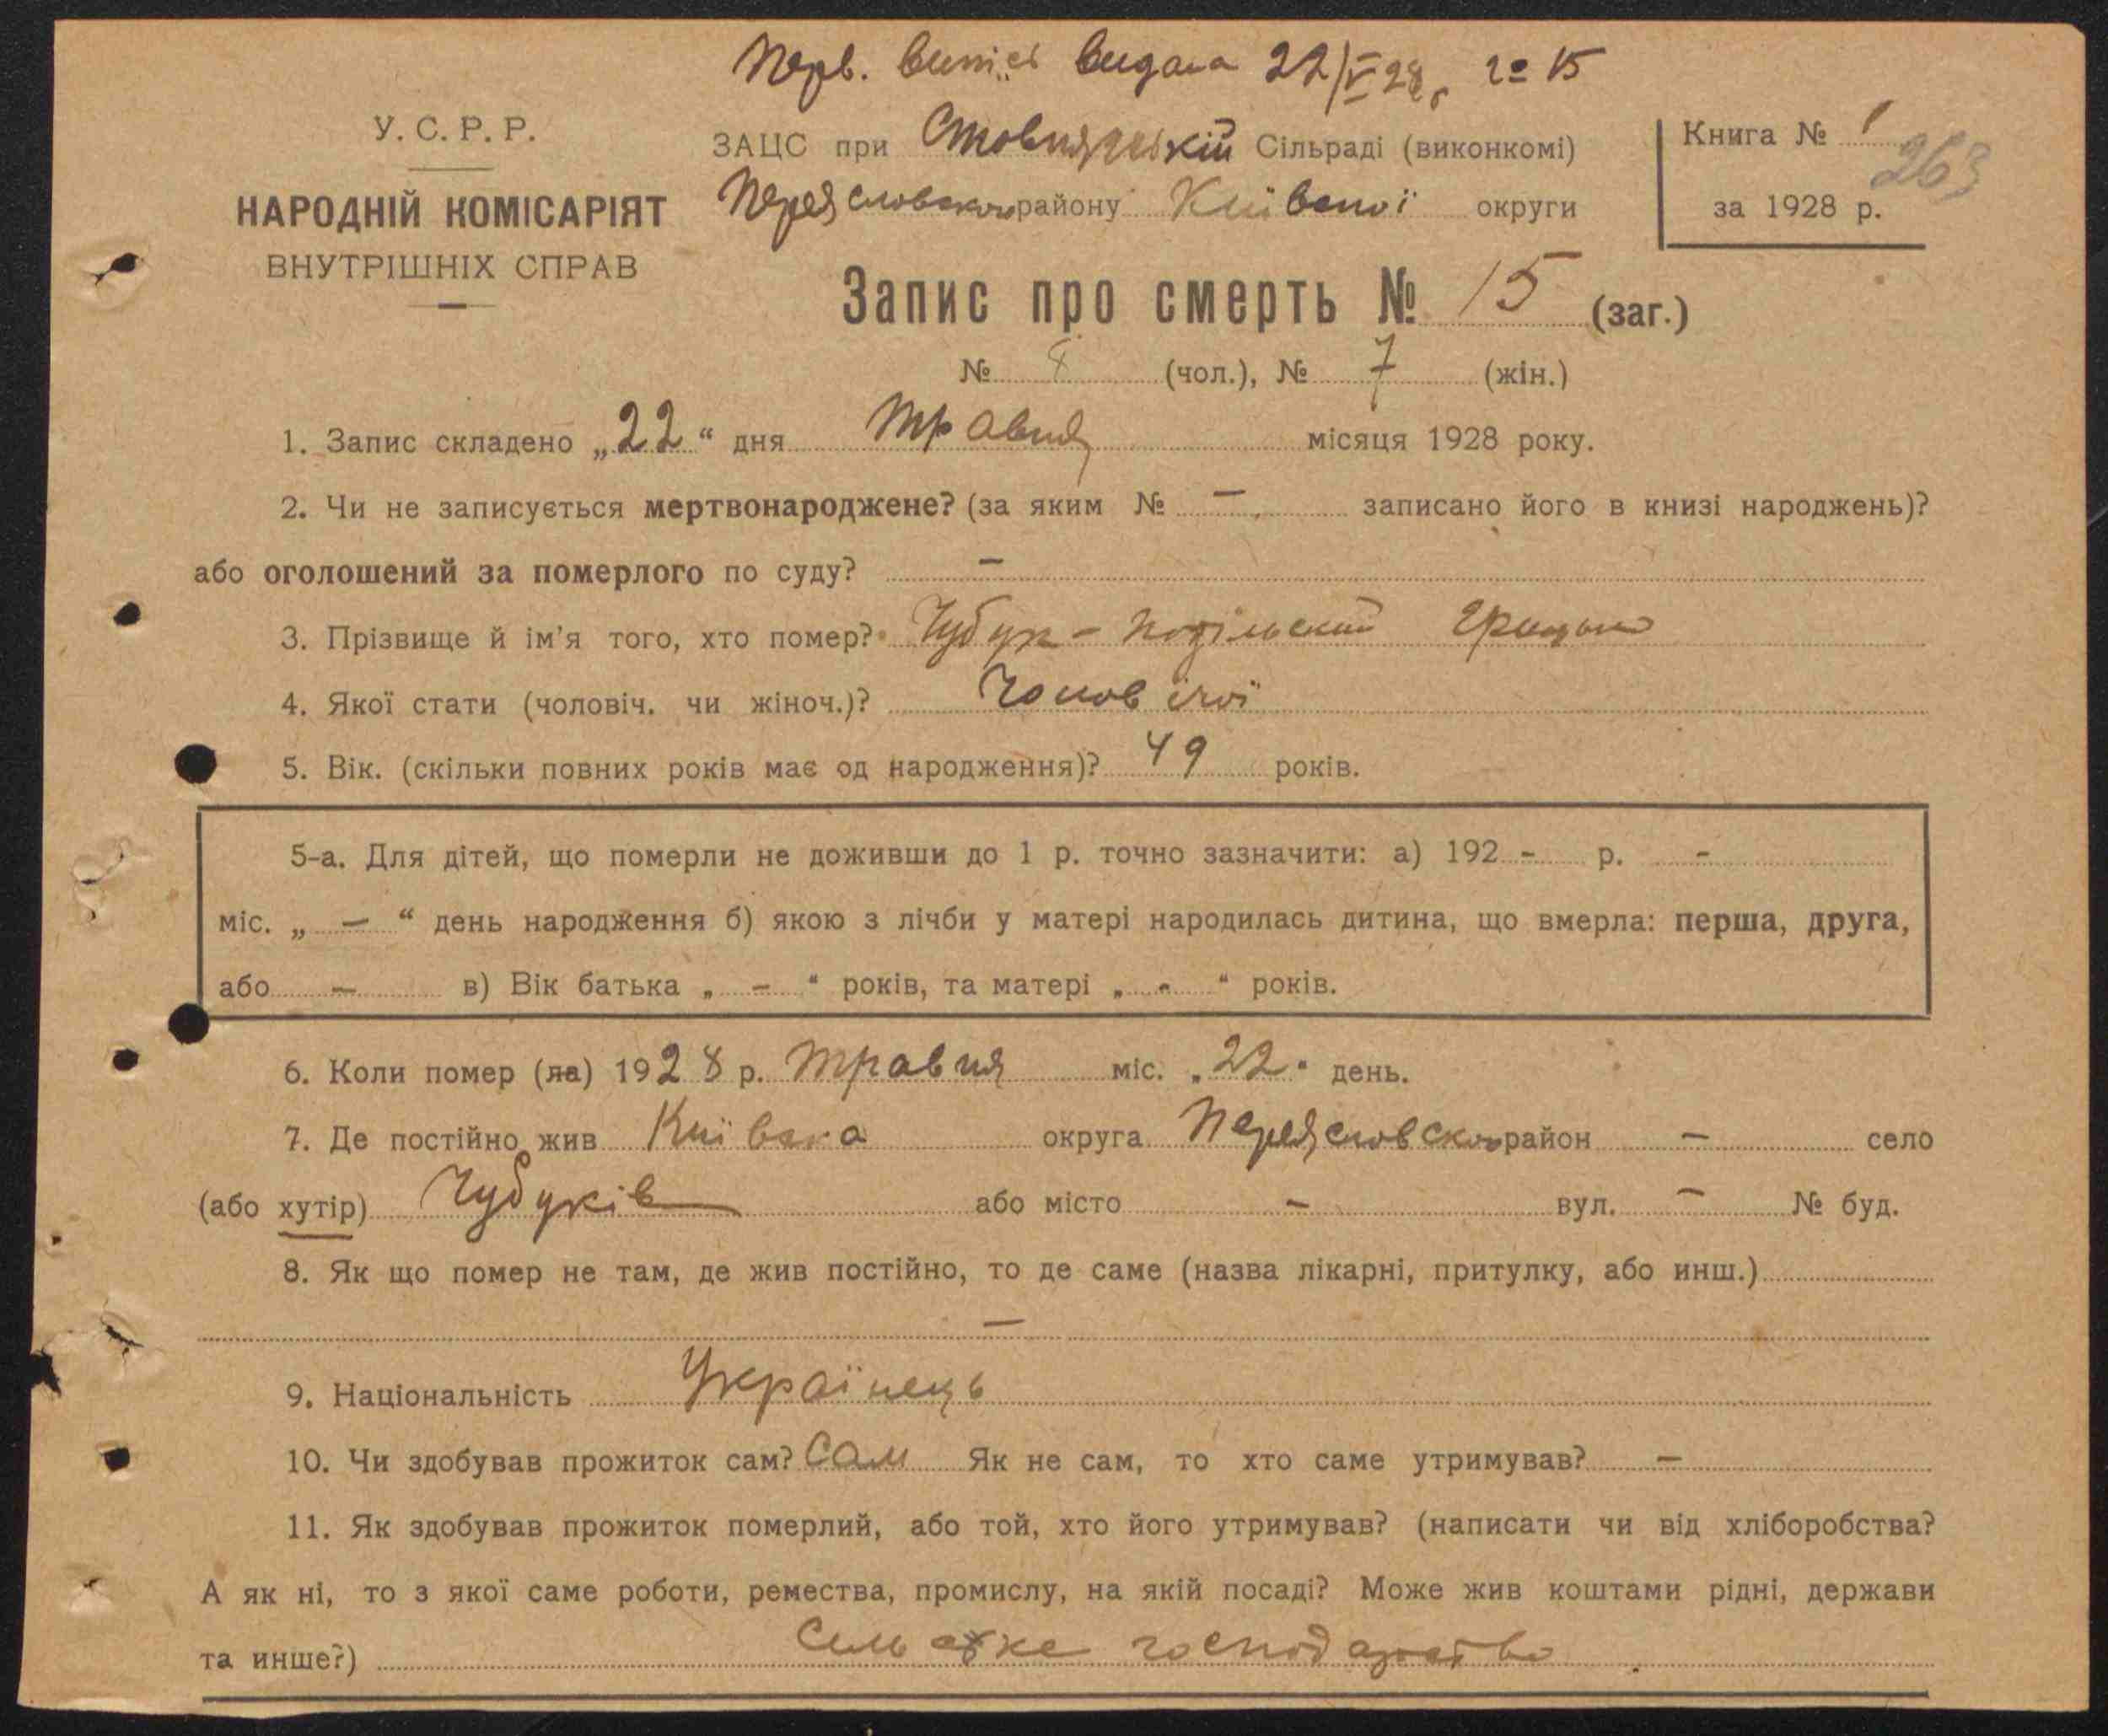 Перв. випись видана 22/V 28 р. № 15
У. С. Р. Р.
НАРОДНІЙ КОМІСАРІЯТ
ВНУТРІШНІХ СПРАВ
ЗАЦС при Стовпязькій Сільраді (виконкомі)
Переясловского району Київської округи
Книга № 1
263
за 1928 р.
Запис про смерть № 15 (заг.)
№ 8 (чол.), № 7 (жін.)
1. Запис складено „22“ дня травня місяця 1928 року.
2. Чи не записується мертвонароджене? (за яким № — записано його в книзі народжень)?
або оголошений за померлого по суду? —
3. Прізвище й ім'я того, хто помер? Чубук-Подільский Грицько
4. Якої стати (чоловіч. чи жіноч.)? Чоловічої
5. Вік. (скільки повних років має од народження)? 49 років.
5-а. Для дітей, що померли не доживши до 1 р. точно зазначити: а) 192 - р. -
міс. „ — “ день народження б) якою з лічби у матері народилась дитина, що вмерла: перша, друга,
або — в) Вік батька „ - “ років, та матері „ - “ років.
6. Коли помер (ла) 1928 р. травня міс. „22“ день.
7. Де постійно жив Київска округа Переясловского район — село
(або хутір) Чубуків або місто — вул. — № буд.
8. Як що помер не там, де жив постійно, то де саме (назва лікарні, притулку, або инш.)
—
9. Національність Українець
10. Чи здобував прожиток сам? Сам Як не сам, то хто саме утримував? —
11. Як здобував прожиток померлий, або той, хто його утримував? (написати чи від хліборобства?
А як ні, то з якої саме роботи, ремества, промислу, на якій посаді? Може жив коштами рідні, держави
та инше?) Сельське господарство